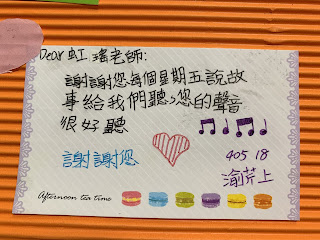 Dear 虹瑤老師:
謝謝您每個星期五說故
事給我們聽,您的聲音
很好聽
謝謝您
405 18
渝芹上
Afternoon tea time